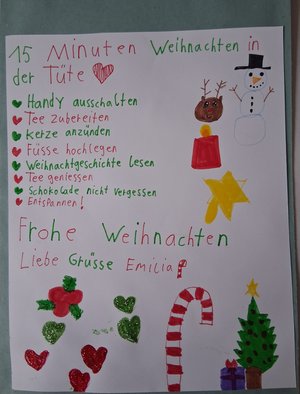 15 Minuten Weihnachten in
der Tüte
Handy ausschalten
Tee zubereiten
Kerze anzünden
Füsse hochlegen
Weihnachtgeschichte lesen
Tee geniessen
Schokolade nicht vergessen
Entspannen!
Frohe Weihnachten
Liebe Grüsse Emilia